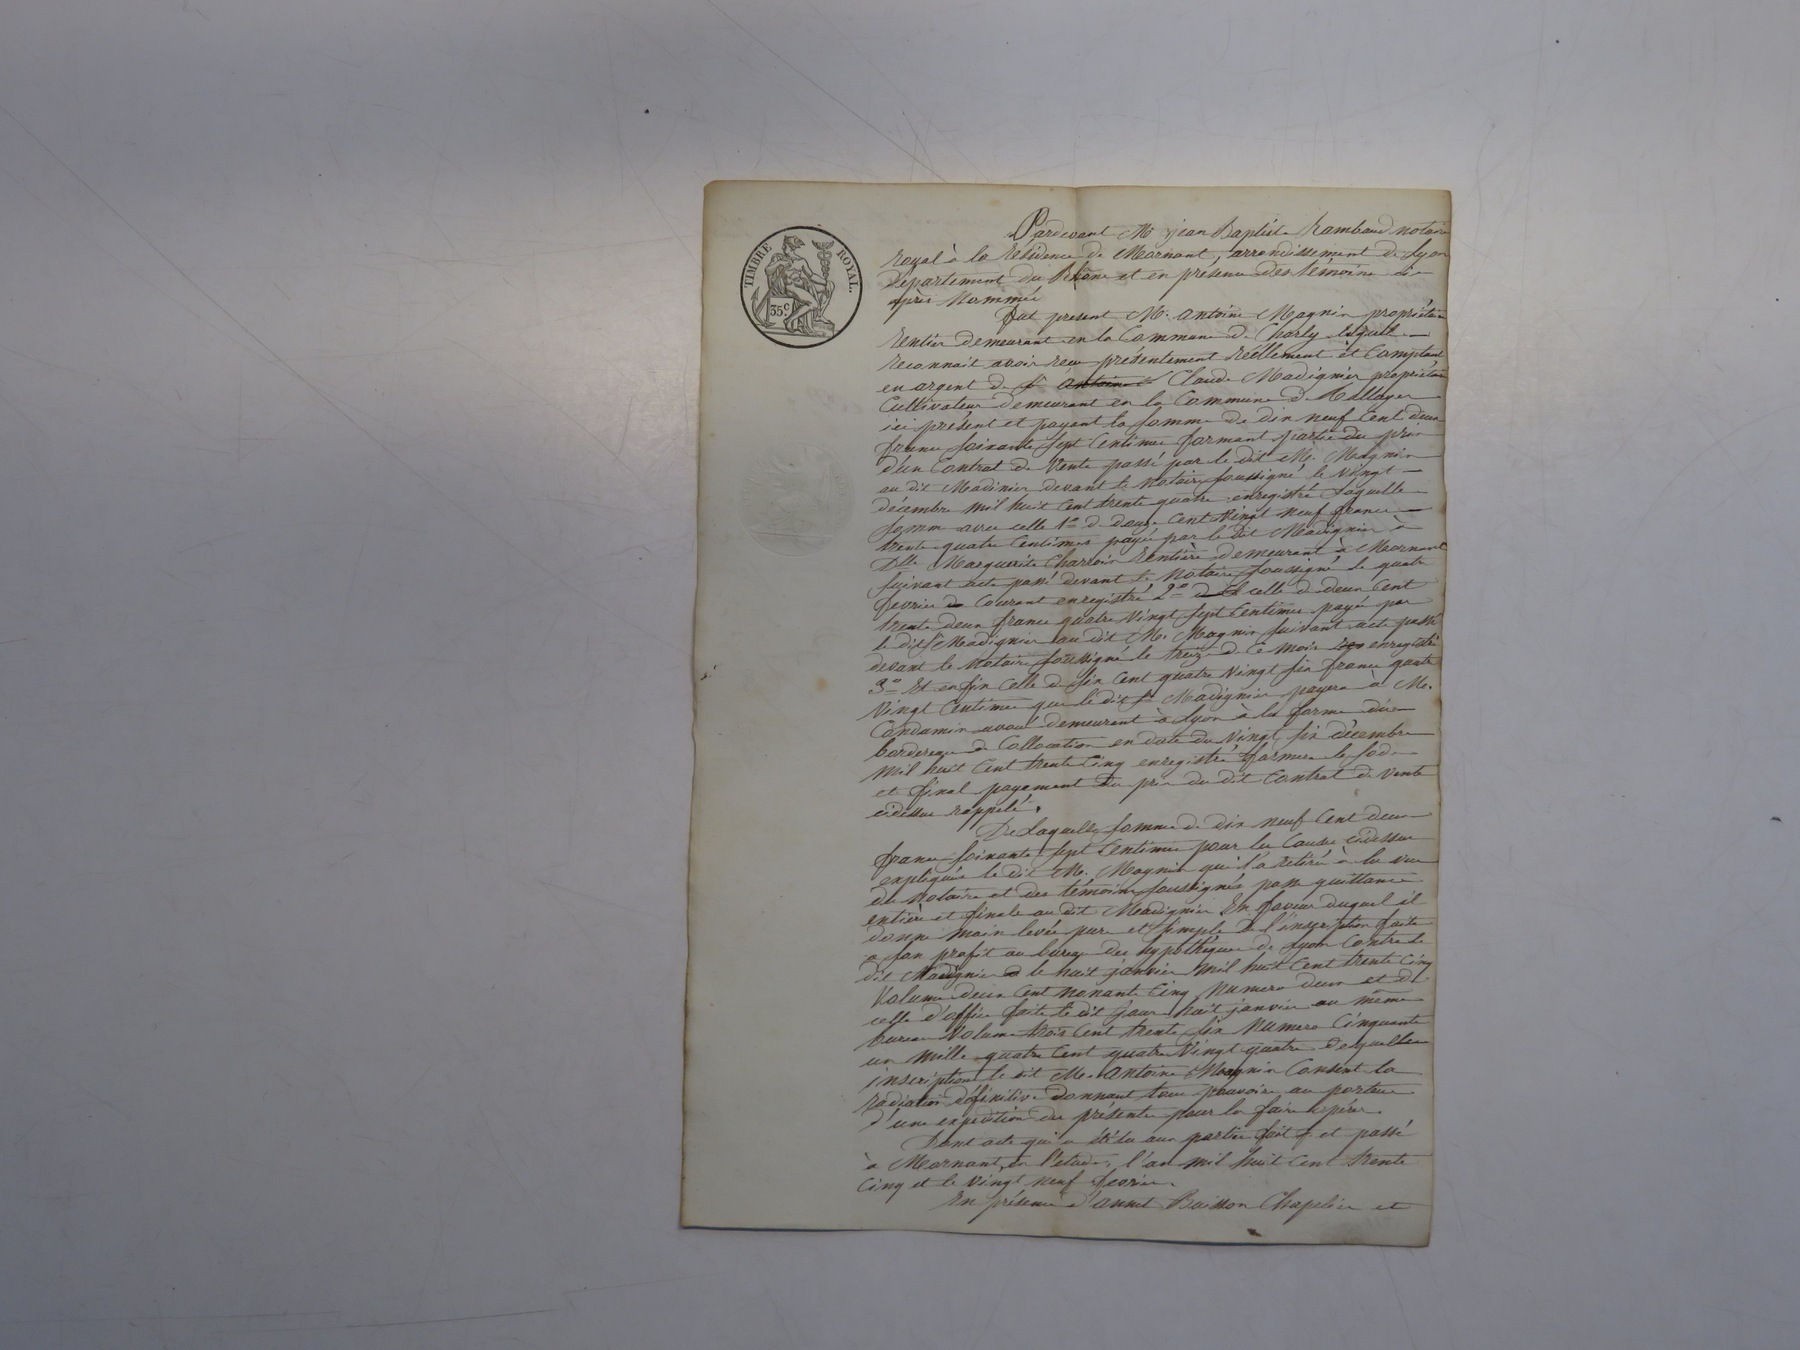 TIMBRE ROYAL.
35 C.
Pardevant Me jean Baptiste Rambaud notaire
royal à la résidence de Mornant, arrondissement de Lyon
département du Rhône et en présence des témoins ci-
après nommés
fut présent Mr. antoine Magnin propriétaire
rentier demeurant en la Commune de Charly lequel
reconnait avoir reçu présentement réellement et Comptant
en argent de Sr antoine Claude Madignier propriétaire
Cultivateur demeurant en la Commune de
ici présent et payant la somme de dix neuf Cent deux
francs soixante sept Centimes formant partie du prix
d'un Contrat de Vente passé par le dit Mr. Magnin
au dit Madinier devant le Notaire soussigné le vingt
décembre mil huit Cent trente quatre enregistré Laquelle
somme avec celle 1o de douze Cent vingt neuf francs
trente quatre Centimes payée par le dit Madignier à
Dlle Marguerite Charroin rentière demeurant à Mornant
suivant acte passé devant le Notaire soussigné le quatre
fevrier Courant enregistré 2o de celle de deux Cent
trente deux francs quatre vingt sept Centimes payée par
le dit Sr Madignier au dit Mr. Magnin suivant acte passé
devant le Notaire soussigné le treize de ce mois enregistré
3o Et enfin celle de six Cent quatre vingt six francs quatre
vingt Centimes que le dit Sr Madignier payera à Me.
Condamin avoué demeurant à Lyon à la forme du
bordereau de Collocation en date du vingt six décembre
mil huit Cent trente Cinq enregistré formera le solde
et final payement du prix du dit Contrat de Vente
cidessus rappelé.
De Laquelle somme de dix neuf Cent deux
francs soixante sept Centimes pour les Causes cidessus
expliquées le dit Mr. Magnin qui l'a retirée à la vue
du Notaire et des témoins soussignés passe quittance
entière et finale au dit Madignier En faveur duquel il
donne main levée pure et simple de l'inscription faite
a son profit au bureau des hypothèques de Lyon Contre le
dit Madignier le huit janvier mil huit Cent trente Cinq
Volume deux Cent nonante Cinq Numero deux et de
celle d'office faite le dit jour huit janvier au même
bureau Volume trois Cent trente six Numero Cinquante
un mille quatre Cent quatre vingt quatre desquelles
inscription le dit Mr. antoine Magnin Consent la
radiation définitive donnant tous pouvoirs au porteur
d'une expédition des présentes pour la faire opérer.
Dont acte qui a été lu aux parties fait et passé
à Mornant, en l'étude, l'an mil huit Cent trente
Cinq et le vingt neuf fevrier.
En présence d'annet Buisson Chapelier et